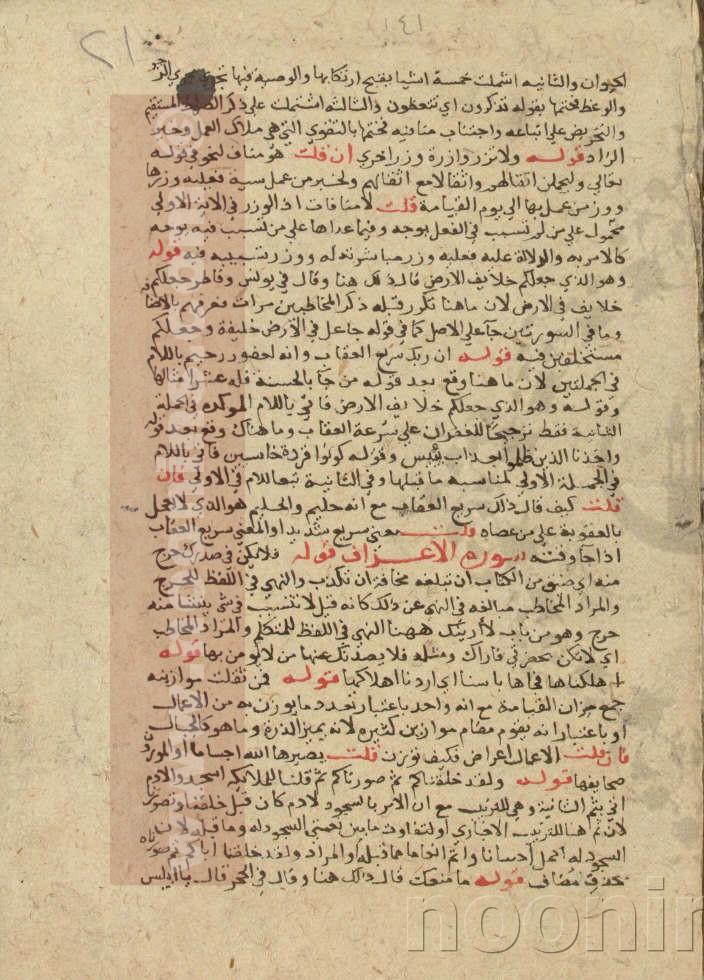 ١٤١
٢١
الحيوان والثانيه اشتملت خمسة اشيا يقبح ارتكابها والوصية فيها تجري مجري الزجر
والوعظ فختمها بقوله تذكرون اي تتعظون والثالثه اشتملت علي ذكر الصراط المستقيم
والتحريض علي اتباعه واجتناب منافيه فختمها بالتقوي التي هي ملاك العمل وخير
الزاد قوله ولا تزر وازرة وزر اخري ان قلت هو مناف لنحو قوله
تعالي وليحملن اثقالهم واثقالا مع اثقالهم ولخبر من عمل سية فعليه وزرها
ووزر من عمل بها الي يوم القيامة قلت لا منافاة اذ الوزر في الاية الاولي
محمول علي من لم يتسبب في الفعل بوجه وفيما عداها علي من تسبب فيه بوجه
كالامر به والدلالة عليه فعليه وزر مباشرته له ووزر تسببه فيه قوله
وهو الذي جعلكم خلايف الارض قال ذلك هنا وقال في يونس وفاطر جعلكم
خلايف في الارض لان ما هنا تكرر قبله ذكر المخاطبين مرات فعرفهم بالاضافة
وما في السورتين جا علي الاصل كما في قوله جاعل في الارض خليفة وجعلكم
مستخلفين فيه قوله ان ربك سريع العقاب وانه لغفور رحيم باللام
في الجملتين لان ما هنا وقع بعد قوله من جا بالحسنة فله عشر امثالها
وقوله وهو الذي جعلكم خلايف الارض فاتي باللام الموكده في الجملة
الثانية فقط ترجيحا للغفران علي سرعة العقاب وما هناك وقع بعد قوله
واخذنا الذين ظلموا بعذاب بئيس وقوله كونوا قردة خاسين فاتي باللام
في الجملة الاولي لمناسبة ما قبلها وفي الثانية تبعا للام في الاولي فان
قلت كيف قال ذلك سريع العقاب مع انه حليم والحليم هو الذي لا يعجل
بالعقوبة علي من عصاه قلت معني سريع شديد او المعني سريع العقاب
اذا جا وقته سورة الاعراف قوله فلا يكن في صدرك حرج
منه اي ضيق من الكتاب ان تبلغه مخافة ان تكذب والنهي في اللفظ للحرج
والمراد المخاطب مبالغه في النهي عن ذلك كانه قيل لا تتسبب في شي ينشا منه
حرج وهو من باب لا أرينك ههنا النهي في اللفظ للمتكلم والمراد المخاطب
اي لا تكن بحضرتي فاراك ومثله فلا يصدنك عنها من لا يومن بها قوله
اهلكناها فجاها باسنا اي اردنا اهلاكها قوله فمن ثقلت موازينه
جمع ميزان القيامة مع انه واحد باعتبار تعدد ما يوزن به من الاعمال
او باعتبار انه يقوم مقام موازين كثيره لانه يميز الذرة وما هو كالجبال
فان قلت الاعمال اعراض فكيف توزن قلت يصيرها الله اجساما او الموزون
صحايفها قوله ولقد خلقناكم ثم صورناكم ثم قلنا للملائكة اسجدوا لادم
اتي بثم الثانية وهي للترتيب مع ان الامر بالسجود لادم كان قبل خلقنا وتصويرنا
لان ثم هنا للترتيب الاخباري او لتفاوت ما بين نعمتي السجود له وما قبله لان
السجود له اكمل احسانا واتم انعاما مما قبله او المراد ولقد خلقنا اباكم ثم صورناه
بحذف مضاف قوله ما منعك قال ذلك هنا وقال في الحجر قال يا ابليس
noonir